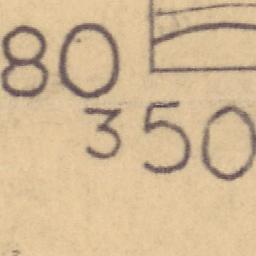 80
350